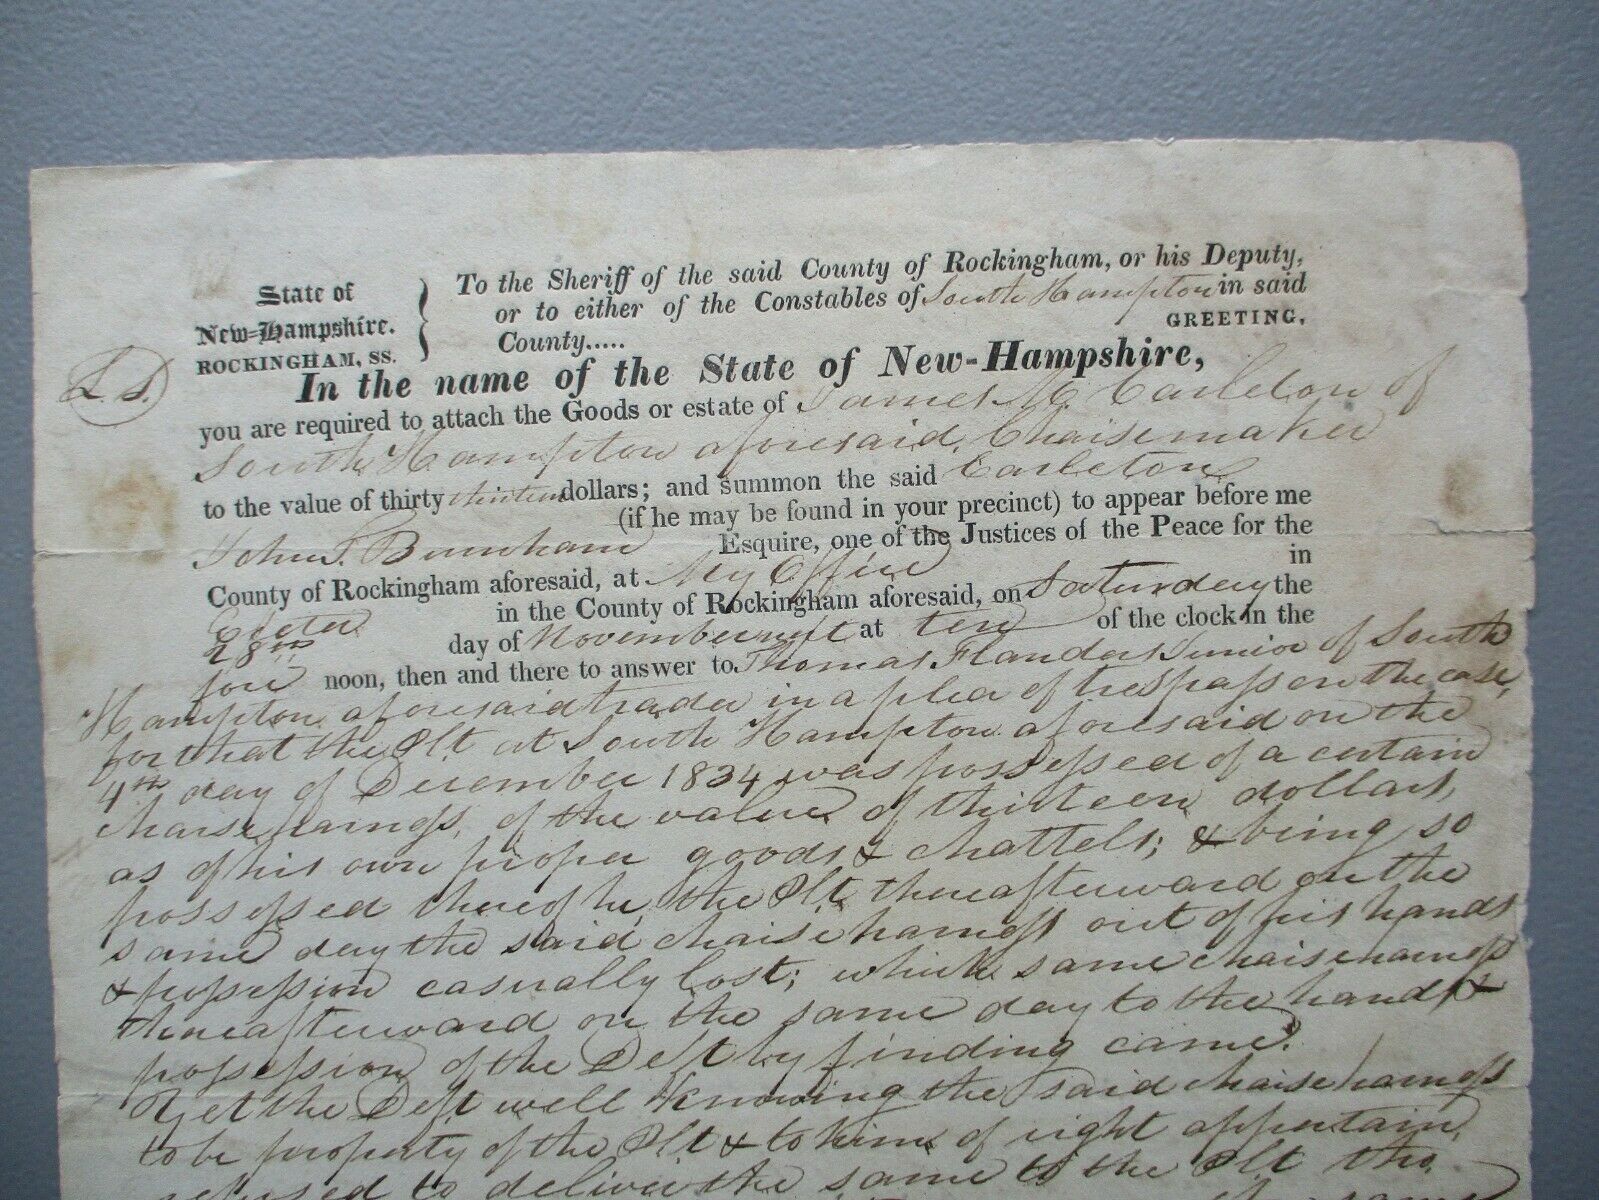 State of
New-Hampshire.
ROCKINGHAM, SS.
To the Sheriff of the said County of Rockingham, or his Deputy,
or to either of the Constables of South Hampton in said
County..... GREETING,
L.S.
In the name of the State of New-Hampshire,
you are required to attach the Goods or estate of James M. Carleton of
South Hampton aforesaid, Chaisemaker
to the value of thirty thirteen dollars; and summon the said Carleton
(if he may be found in your precinct) to appear before me
John S. Burnham Esquire, one of the Justices of the Peace for the
County of Rockingham aforesaid, at My Office in
Exeter in the County of Rockingham aforesaid, on Saturday the
28th day of November next at ten of the clock in the
fore noon, then and there to answer to Thomas Flanders Junior of South
Hampton aforesaid trader in a plea of trespass on the case,
for that the Plt at South Hampton aforesaid on the
4th day of December 1834 was possessed of a certain
chaise harness, of the value of thirteen dollars,
as of his own proper goods & chattels; & being so
possessed thereof he, the Plt, thereafterward on the
same day the said chaise harness out of his hands
& possession casually lost; which same chaise harness
thereafterward on the same day to the hands &
possession of the Deft by finding came.
Yet the Deft well knowing the said chaise harness
to be property of the Plt & to him of right appertain,
refused to deliver the same to the Plt tho.
same